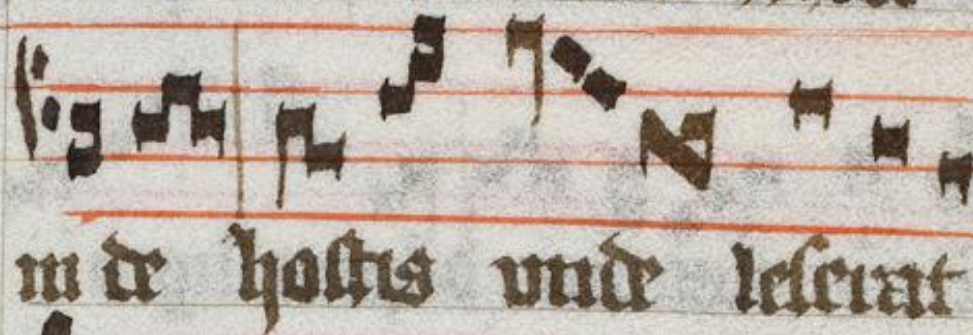 in de hostis unde leserat